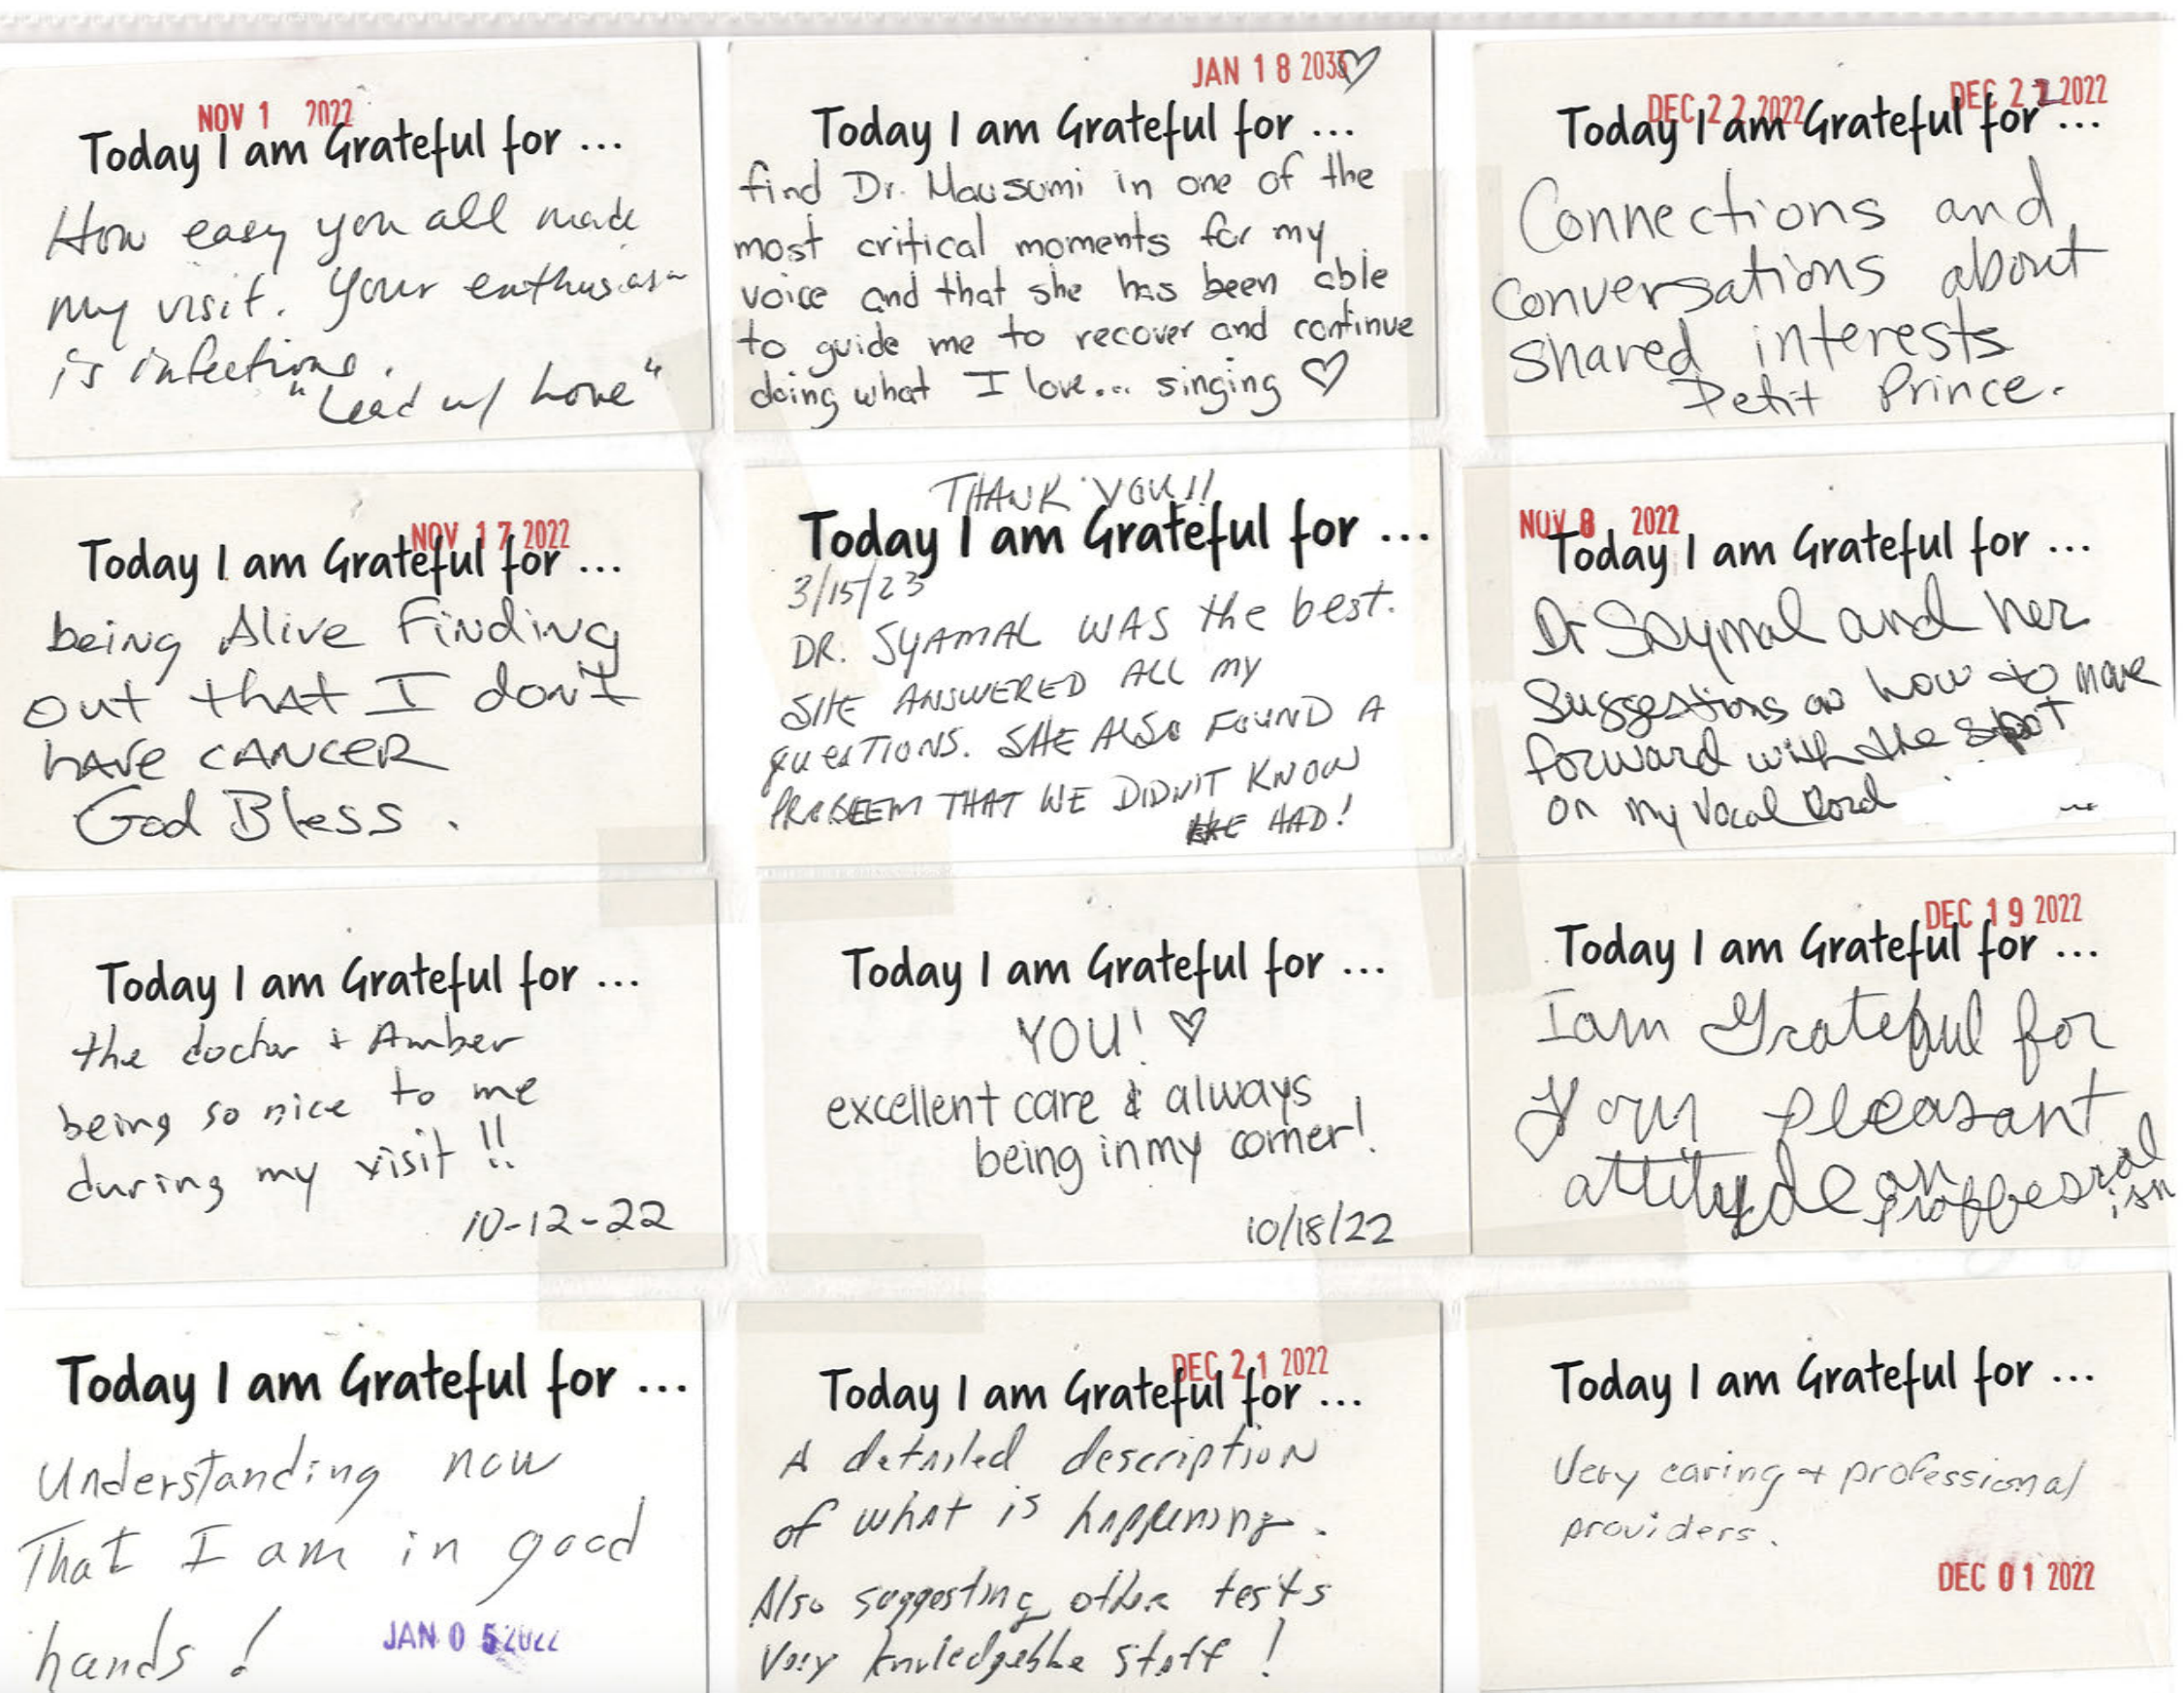 NOV 1 2022
Today I am Grateful for ...
How easy you all made
my visit. Your enthusiasm
is infectious.
"Lead w/ Love"
JAN 18 203
Today I am Grateful for ...
find Dr. Mausumi in one of the
most critical moments for my
voice and that she has been able
to guide me to recover and continue
doing what I love... singing ♡
DEC 22 2022 DEC 22 2022
Today I am Grateful for ...
Connections and
conversations about
shared interests
Petit Prince.
NOV 17 2022
Today I am Grateful for ...
being Alive Finding
out that I don't
have CANCER
God Bless.
THANK YOU!!
Today I am Grateful for ...
3/15/23
DR. SYAMAL WAS the best.
SHE ANSWERED ALL MY
QUESTIONS. SHE ALSO FOUND A
PROBLEM THAT WE DIDN'T KNOW
HAD!
NOV 8 2022
Today I am Grateful for ...
Dr Saymal and her
Suggestions on how to move
forward with the spot
on my Vocal Cord
Today I am Grateful for ...
the doctor + Amber
being so nice to me
during my visit!!
10-12-22
Today I am Grateful for ...
YOU! ♡
excellent care & always
being in my corner!
10/18/22
DEC 19 2022
Today I am Grateful for ...
I am Grateful for
Your pleasant
attitude an
Today I am Grateful for ...
Understanding now
That I am in good
hands!
JAN 05 2022
DEC 21 2022
Today I am Grateful for ...
A detailed description
of what is happening.
Also suggesting other tests
Very knowledgeable staff!
Today I am Grateful for ...
Very caring + professional
providers.
DEC 01 2022